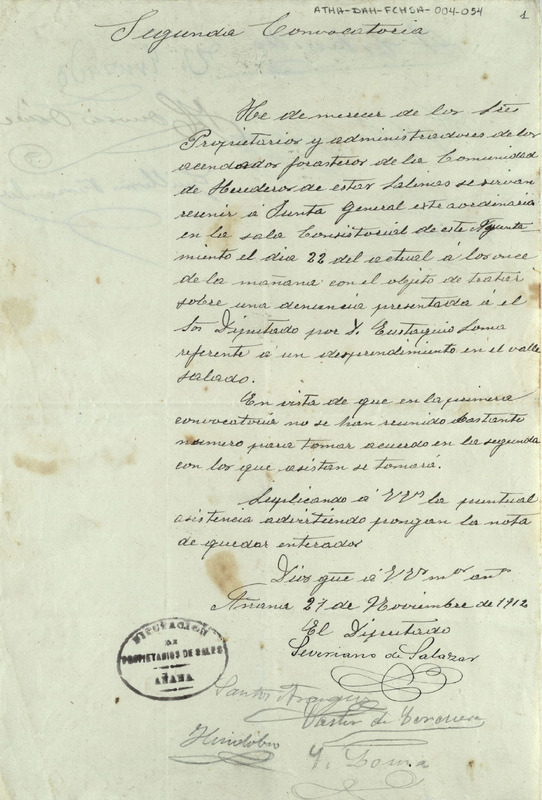 ATHA-DAH-FCHSA-004-054
1
Segunda Convocatoria
He de merecer de los Sres
Propietarios y administradores de los
acendados forasteros de la Comunidad
de Herederos de estas Salinas se sirvan
reunir á Junta General extraordinaria
en la sala Consistorial de este Ayunta-
miento el dia 22 del actual á las once
de la mañana con el objeto de tratar
sobre una denuncia presentada á el
Sor Diputado por D. Eustaquio Loma
referente á un desprendimiento en el valle
salado.
En vista de que en la primera
convocatoria no se han reunido bastante
numero para tomar acuerdo en la segunda
con los que asistan se tomará.
Suplicando á VVs la puntual
asistencia advirtiendo pongan la nota
de quedar enterados
Dios gue á VVs ms ans
Añana 21 de Noviembre de 1912
El Diputado
Severiano de Salazar
DIPUTACION
DE
PROPIETARIOS DE SALES
AÑANA
Santos
Valentin de
E. Loma